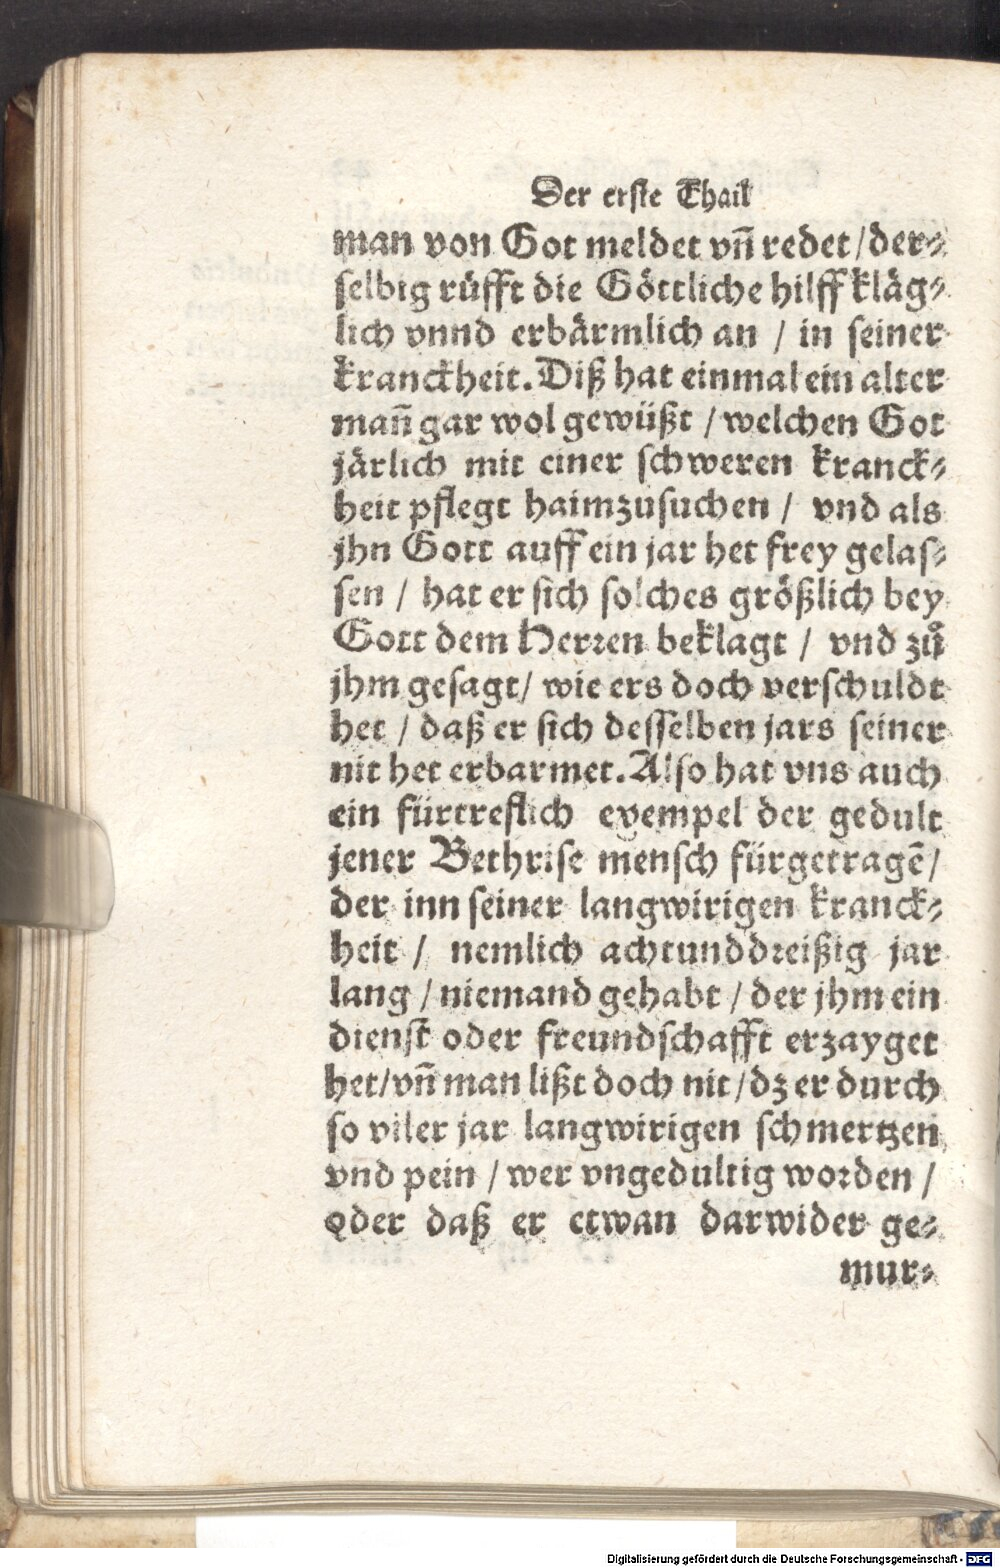 Der erste Thail
man von Got meldet vñ redet / der⸗
selbig růfft die Göttliche hilff kläg⸗
lich vnnd erbärmlich an / in seiner
kranckheit. Diß hat einmal ein alter
mañ gar wol gewüßt / welchen Got
järlich mit einer schweren kranck⸗
heit pflegt haimzusuchen / vnd als
jhn Gott auff ein jar het frey gelas⸗
sen / hat er sich solches größlich bey
Gott dem Herren beklagt / vnd zů
jhm gesagt / wie ers doch verschuldt
het / daß er sich desselben jars seiner
nit het erbarmet. Also hat vns auch
ein fürtreflich exempel der gedult
jener Bethrise mensch fürgetragẽ /
der inn seiner langwirigen kranck⸗
heit / nemlich achtunddreißig jar
lang / niemand gehabt / der jhm ein
dienst oder freundschafft erzayget
het / vñ man lißt doch nit / dz er durch
so viler jar langwirigen schmertzen
vnd pein / wer vngedultig worden /
Oder daß er etwan darwider ge⸗
mur⸗
Digitalisierung gefördert durch die Deutsche Forschungsgemeinschaft - DFG